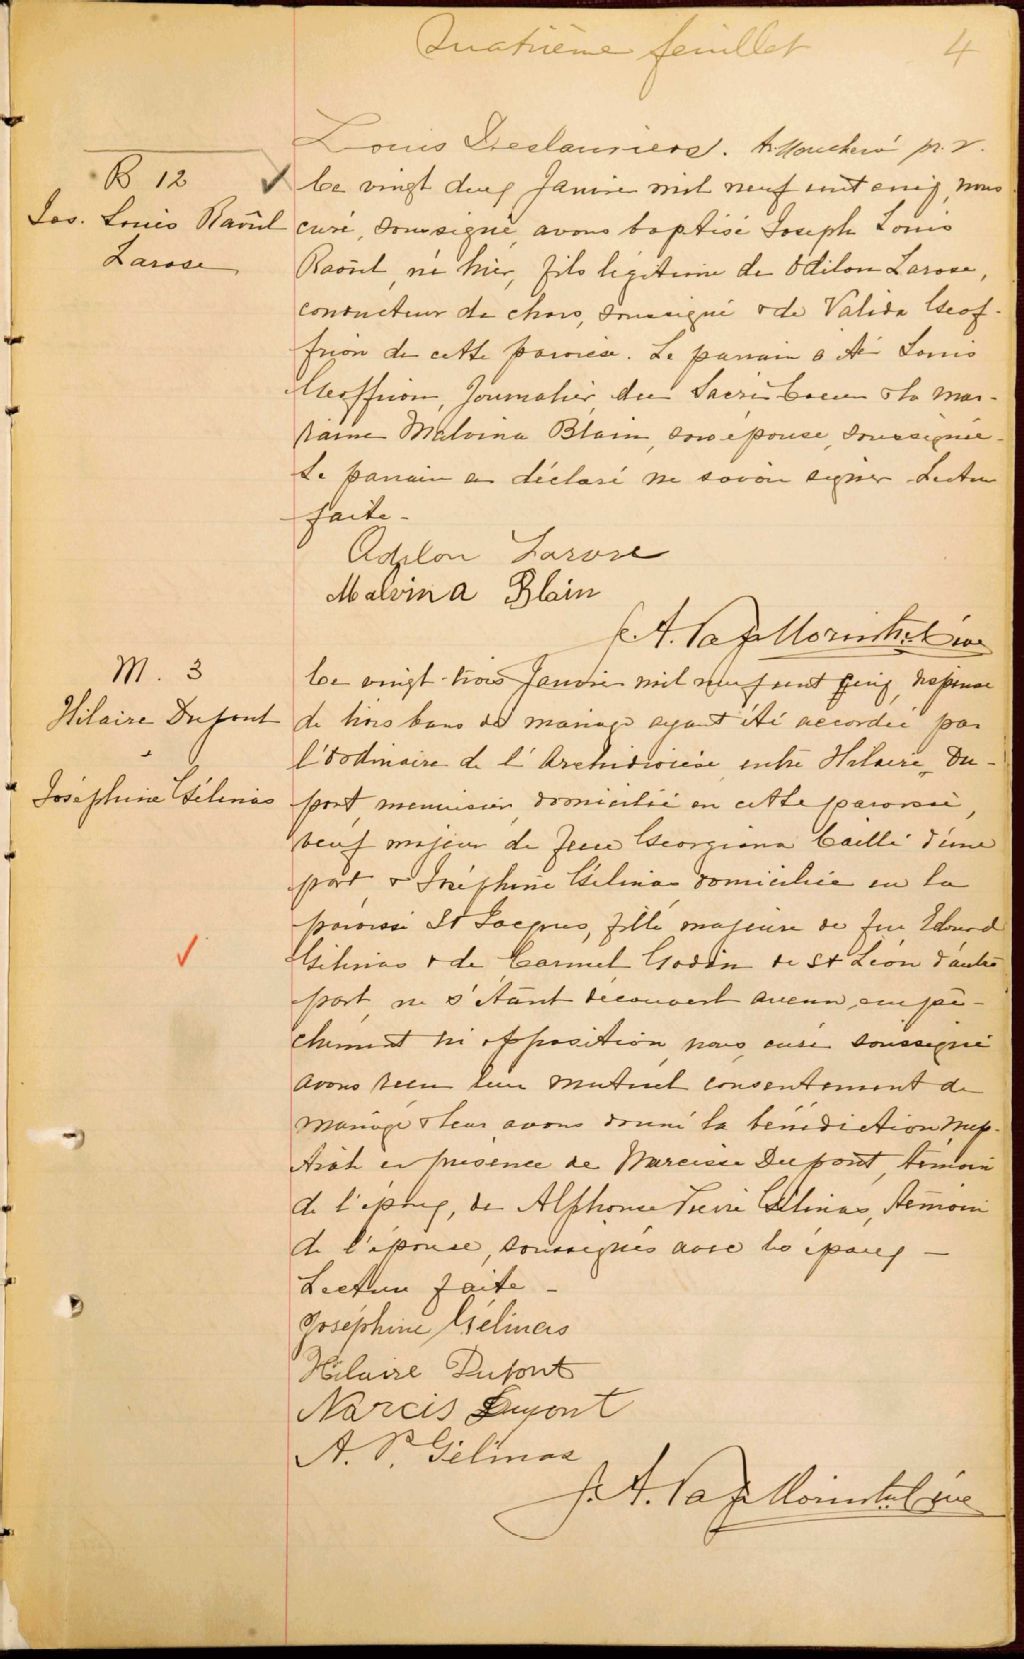 Quatrième feuillet 4
Louis Deslauriers. ptr. v.
B 12
Jos. Louis Raoül
Larose
Ce vingt deux Janvier mil neuf cent cinq, nous
curé, soussigné, avons baptisé Joseph Louis
Raoül, né hier, fils légitime de Odilon Larose,
conducteur de chars, soussigné & de Valida Geof-
frion de cette paroisse. Le parrain a été Louis
Geoffrion, Journalier, du Sacré Coeur & la mar-
raine Malvina Blain, son épouse, soussignée.
Le parrain a déclaré ne savoir signer. Lecture
faite -
Odilon Larose
Malvina Blain
J. A. Curé
M. 3
Hilaire Dupont
&
Joséphine Gélinas
Ce vingt-trois Janvier mil neuf cent cinq, dispense
de trois bans de mariage ayant été accordée par
l'Ordinaire de l'Archidiocèse, entre Hilaire Du-
pont, menuisier, domicilié en cette paroisse,
veuf majeur de feue Georgiana Caillé d'une
part & Joséphine Gélinas domiciliée en la
paroisse St Jacques, fille majeure de feu Edouard
Gélinas & de Carmel Godin de St Léon d'autre
part, ne s'étant découvert aucun empê-
chement ni opposition, nous, curé soussigné
avons reçu leur mutuel consentement de
mariage & leur avons donné la bénédiction nup-
tiale en présence de Narcisse Dupont, témoin
de l'époux, de Alphonse Pierre Gélinas, témoin
de l'épouse, soussignés avec les époux -
Lecture faite -
Joséphine Gélinas
Hilaire Dupont
Narcis Dupont
A. P. Gélinas
J. A. Curé